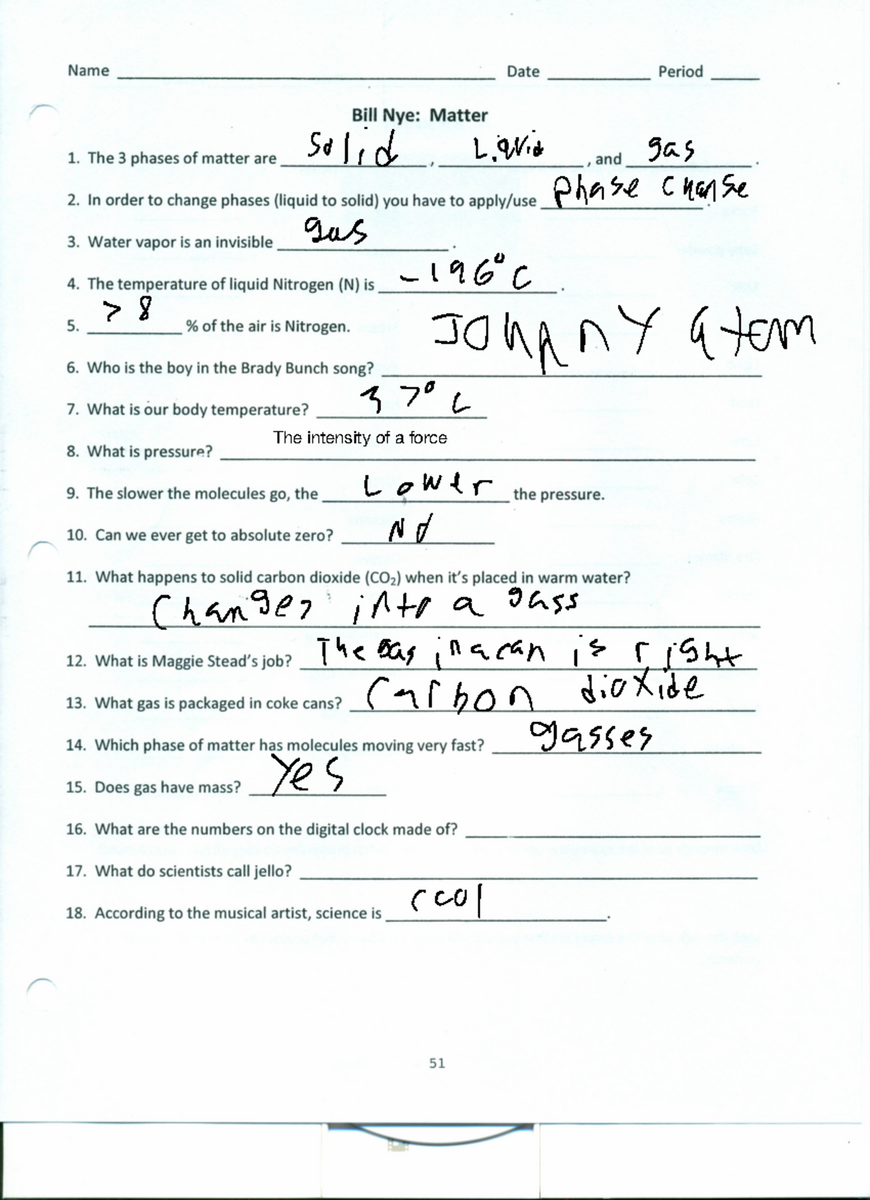 Name ______ Date ______ Period ______
Bill Nye: Matter
1. The 3 phases of matter are solid, Liquid, and gas.
2. In order to change phases (liquid to solid) you have to apply/use phase change.
3. Water vapor is an invisible gas.
4. The temperature of liquid Nitrogen (N) is -196°C.
5. >8 % of the air is Nitrogen.
6. Who is the boy in the Brady Bunch song? JOhnny atom
7. What is our body temperature? 37°C
8. What is pressure? The intensity of a force
9. The slower the molecules go, the Lower the pressure.
10. Can we ever get to absolute zero? No
11. What happens to solid carbon dioxide (CO₂) when it's placed in warm water?
Changes into a gass
12. What is Maggie Stead's job? The gas in a can is right
13. What gas is packaged in coke cans? Carbon dioxide
14. Which phase of matter has molecules moving very fast? gasses
15. Does gas have mass? Yes
16. What are the numbers on the digital clock made of? ______
17. What do scientists call jello? ______
18. According to the musical artist, science is ccol.
51